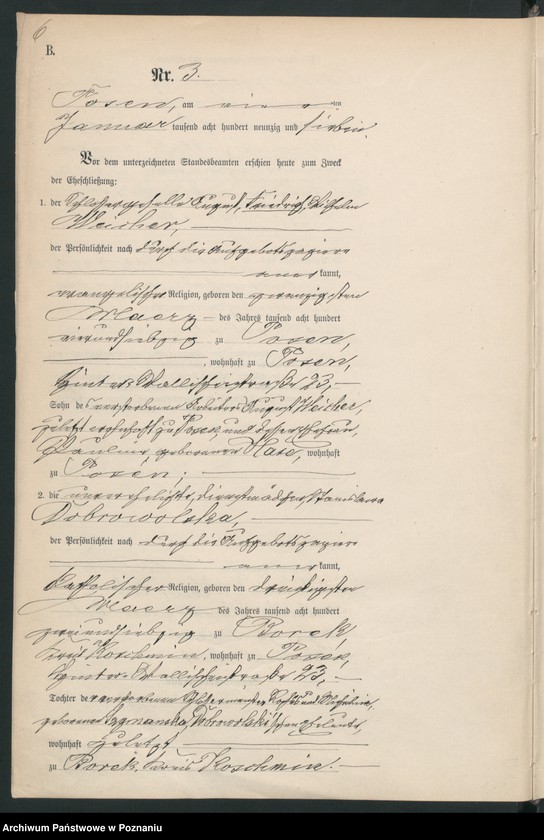 6
B.
Nr. 3.
Posen, am vierten
Januar tausend acht hundert neunzig und sieben.
Vor dem unterzeichneten Standesbeamten erschien heute zum Zweck
der Eheschließung:
1. der Schlossergeselle August, Friedrich, Wilhelm
Weicher,
der Persönlichkeit nach durch die Aufgebotspapiere
anerkannt,
evangelischer Religion, geboren den zwanzigsten
Maerz des Jahres tausend acht hundert
vierundsiebzig zu Posen,
, wohnhaft zu Posen,
Hinter-Wallischeistraße 23,
Sohn des verstorbenen Arbeiters August Weicher,
zuletzt wohnhaft zu Posen, und dessen Ehefrau,
Pauline geborenen wohnhaft
zu Posen;
2. die unverehelichte, Dienstmädchen, Stanislawa
Dobrowolska,
der Persönlichkeit nach durch die Aufgebotspapiere
anerkannt,
katholischer Religion, geboren den dreißigsten
Maerz des Jahres tausend acht hundert
zweiundsiebzig zu Borek,
Kreis Koschmin, wohnhaft zu Posen,
Hinter-Wallischeistraße 23,
Tochter der verstorbenen und
geborenen Szymanska, Dobrowolski'schen Eheleute,
wohnhaft zuletzt
zu Borek, Kreis Koschmin.
Archiwum Państwowe w Poznaniu